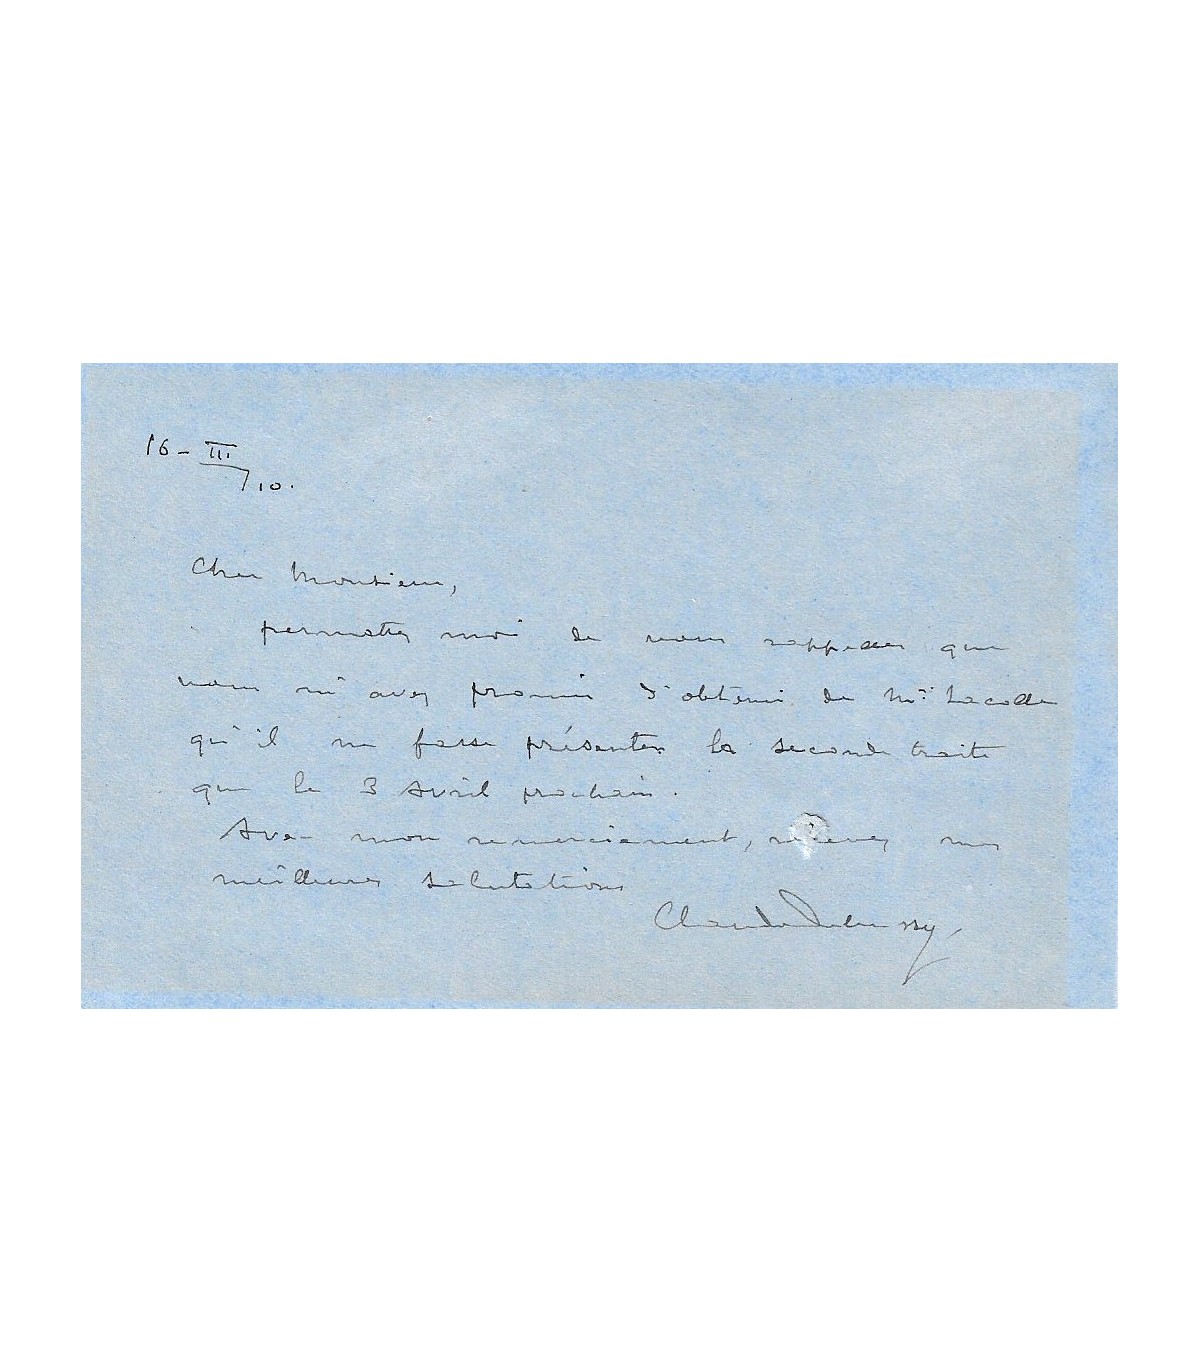 16 - III
/10.
Cher Monsieur,
permettez moi de vous rappeler que
vous m'avez promis d'obtenir de Mr
qu'il ne fasse présenter la seconde traite
que le 3 Avril prochain.
Avec mon remerciement, recevez mes
meilleures salutations
Claude Debussy